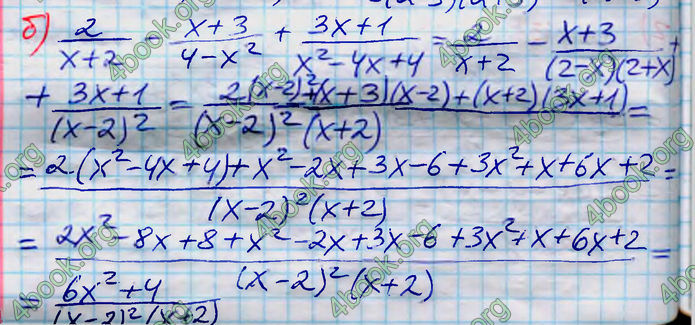 б) 2/(x+2) - (x+3)/(4-x²) + (3x+1)/(x²-4x+4) = 2/(x+2) - (x+3)/((2-x)(2+x)) +
+ (3x+1)/(x-2)² = (2(x-2)²+(x+3)(x-2)+(x+2)(3x+1))/((x-2)²(x+2)) =
= (2·(x²-4x+4)+x²-2x+3x-6+3x²+x+6x+2)/((x-2)²(x+2)) =
= (2x²-8x+8+x²-2x+3x-6+3x²+x+6x+2)/((x-2)²(x+2)) =
= (6x²+4)/((x-2)²(x+2))
4book.org